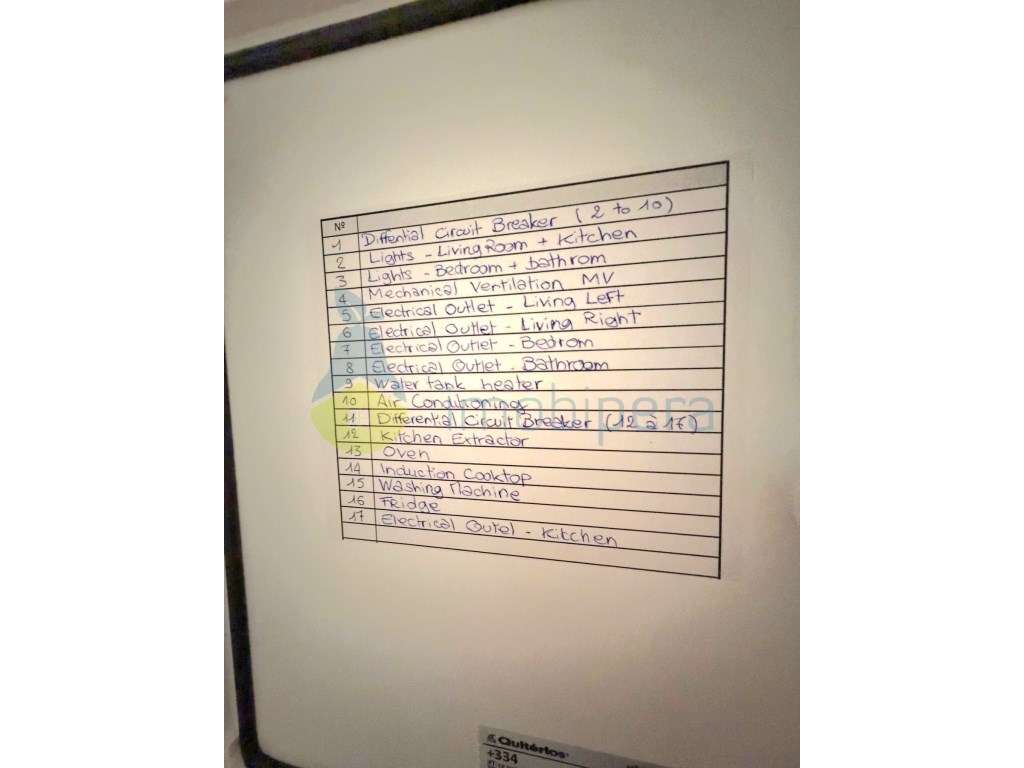 Nº
1 Diffential Circuit Breaker (2 to 10)
2 Lights - Living Room + Kitchen
3 Lights - Bedroom + bathrom
4 Mechanical Ventilation MV
5 Electrical Outlet - Living Left
6 Electrical Outlet - Living Right
7 Electrical Outlet - Bedrom
8 Electrical Outlet - Bathroom
9 Water tank heater
10 Air Conditioning
11 Differential Circuit Breaker (12 a 17)
imahipera
12 Kitchen Extractor
13 Oven
14 Induction Cooktop
15 Washing Machine
16 Fridge
17 Electrical Outel - Kitchen
Quitérios
+334